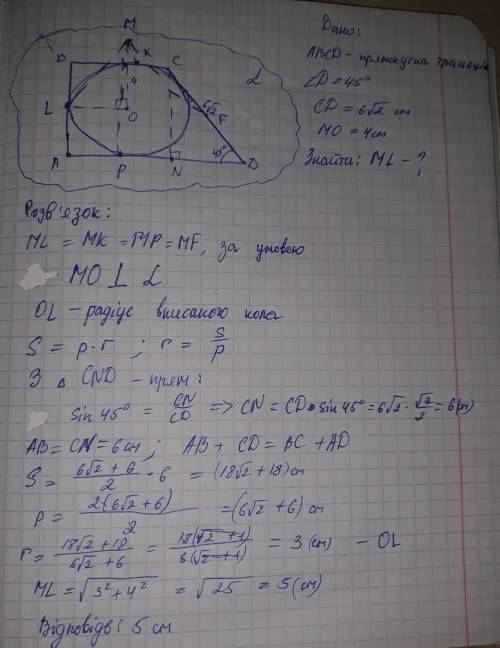 M
Дано:
B K C
ABCD - прямокутна трапеція
α
∠D = 45°
L O 6√2 F
CD = 6√2 см
MO = 4 см
45°
A P N D
Знайти: ML - ?
Розв'язок:
ML = MK = MP = MF, за умовою
MO ⊥ α
OL - радіус вписаного кола
S = p · r ; r = S/p
З △ CND - прям:
sin 45° = CN/CD => CN = CD • sin 45° = 6√2 · √2/2 = 6(см)
AB = CN = 6 см ; AB + CD = BC + AD
S = (6√2 + 6)/2 · 6 = (18√2 + 18) см
p = 2(6√2 + 6)/2 = (6√2 + 6) см
r = (18√2 + 18)/(6√2 + 6) = 18(√2 + 1)/6(√2 + 1) = 3 (см) - OL
ML = √3² + 4² = √25 = 5 (см)
Відповідь: 5 см